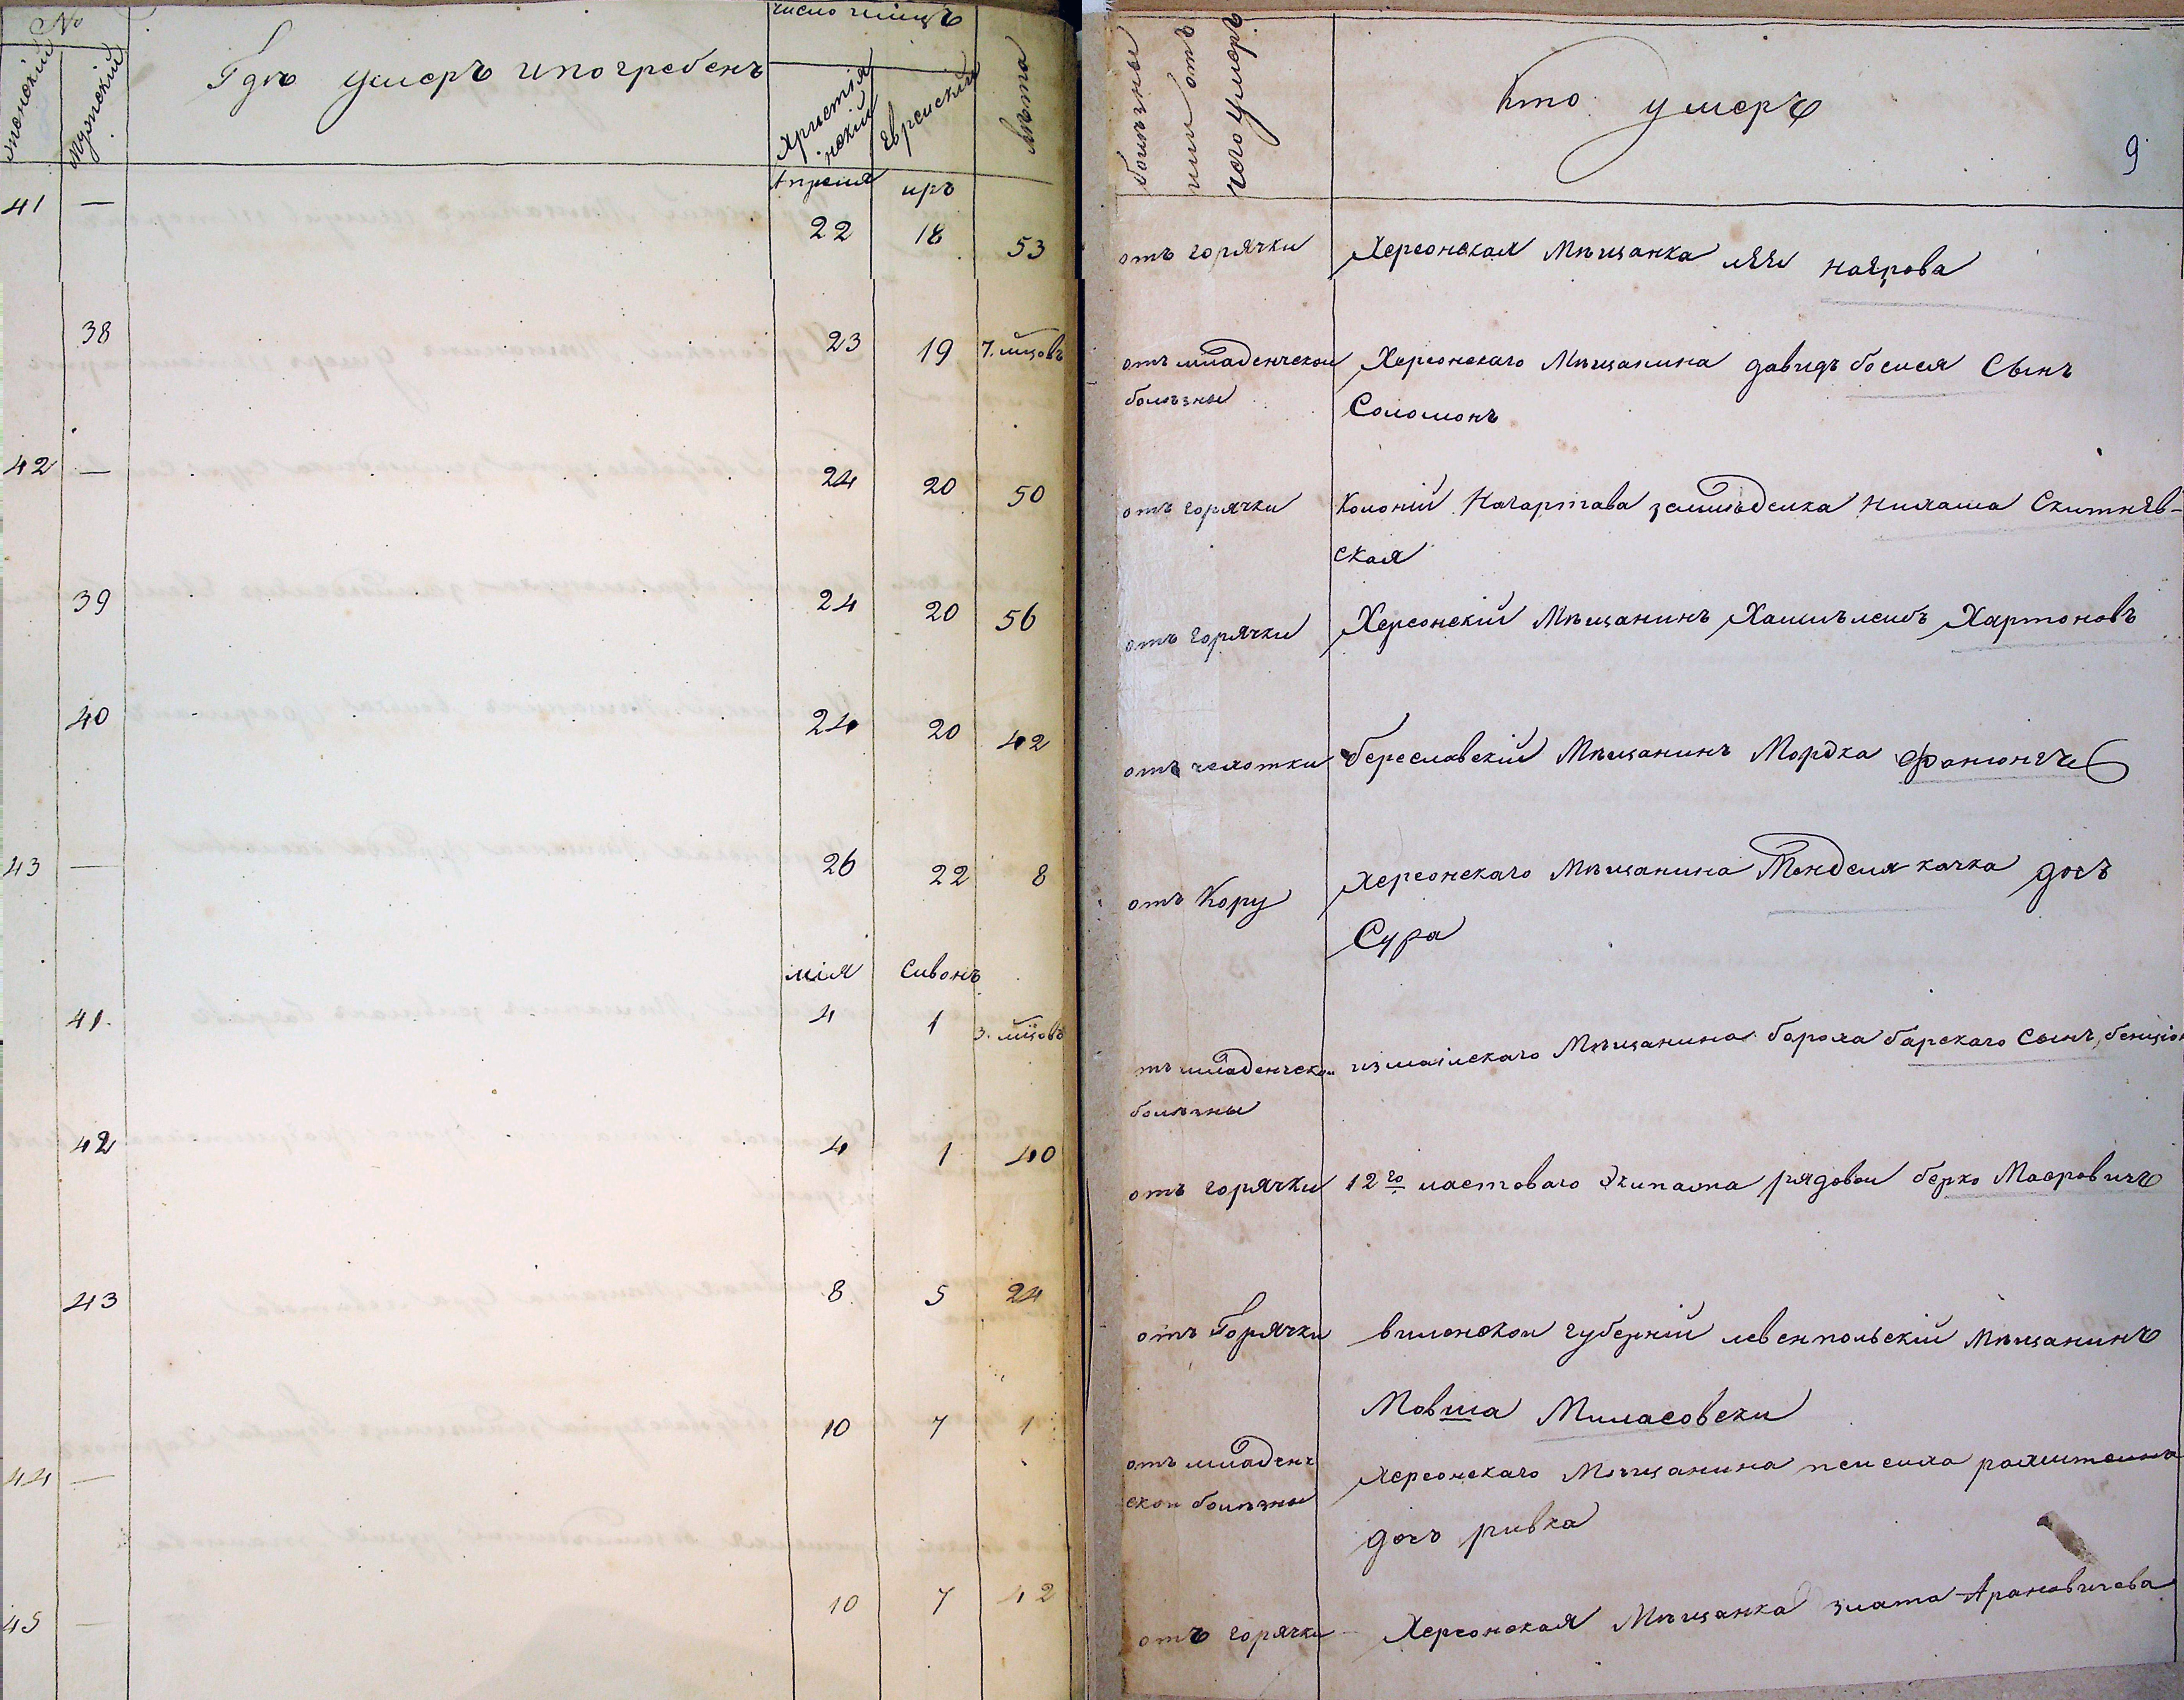 №
женскій
мужескій
Гдѣ умеръ ипогребенъ
Христіа
нскій
Еврейскій
лѣта
болѣзны
или отъ
чего умеръ
Кто умеръ
9
Апреля иръ
41 — 22 18 53 отъ горячки Херсонская Мѣщанка
38 23 19 7. мцовъ отъ младенческой Херсонскаго Мѣщанина давидъ босися Сынъ
болѣзны Соломонъ
42 — 24 20 50 отъ горячки Колоній Нагартава земледелка Скитнев-
ская
39 24 20 56 отъ горячки Херсонскій Мѣщанинъ Хартоновъ
40 24 20 42 отъ чехотки береславскій Мѣщанинъ Мордка
43 — 26 22 8 отъ Кору Херсонскаго Мѣщанина Менделя качка дочъ
Сура
мія Сивонъ
41. 4 1 3. мцовъ тъ младенческой измаилскаго Мѣщанина бороха барскаго Сынъ бенціон
болѣзны
42 4 1 40 отъ горячки 12го ластоваго Экипажа рядовои берко Маеровичъ
43 8 5 24 отъ Горячки виленской губерній левенпольскій Мѣщанинъ
Мовша Миласовски
44 — 10 7 1 отъ младенч Херсонскаго Мѣщанина
ской болѣзны дочъ ривка
45 — 10 7 42 отъ горячки Херсонская Мѣщанка злата Арановичева